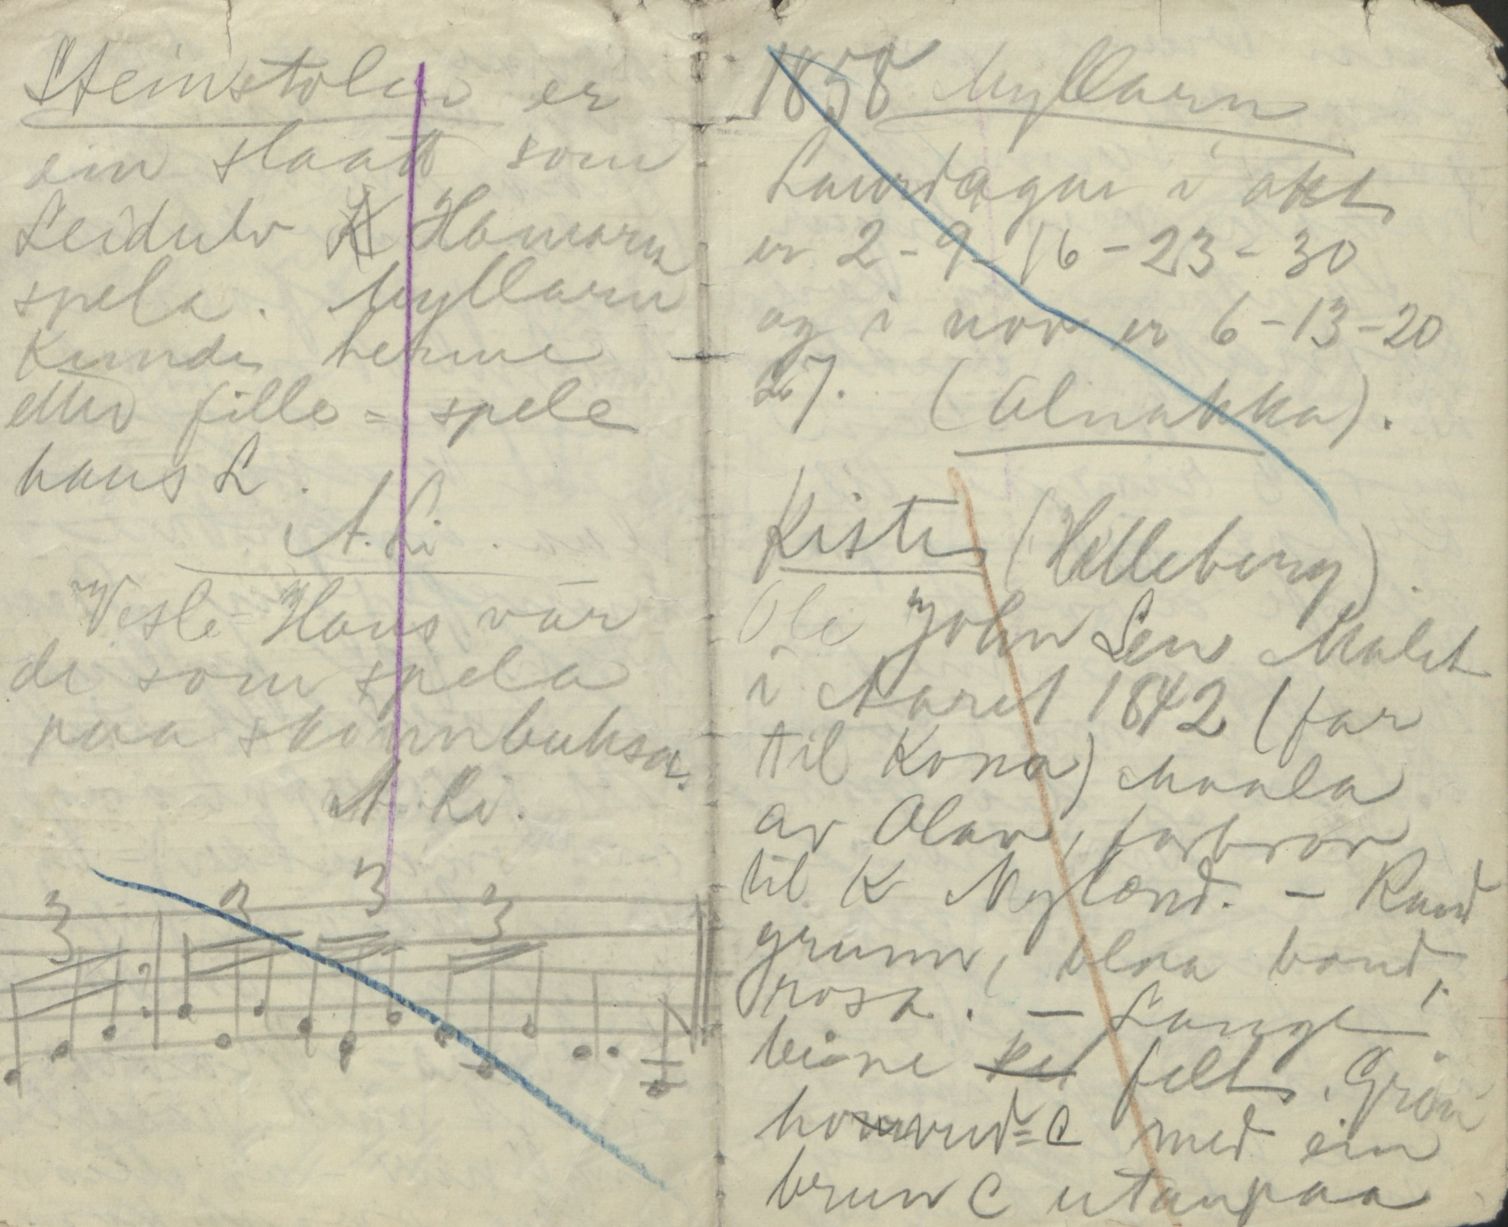 Steinstolen er
ein slaatt som
Leidulv Hamarn
spela. Myllarn
kunde herme
etter fille-spele
hans L.
A. Li.
Vesle-Hans var
de som spela
paa skinnbuksa.
A. Li.
3 3 3 3
1858 Myllarn
Laurdagar i okt
er 2-9-16-23-30
og i nov er 6-13-20
27. (Alnakka).
Kiste (Helleberg).
Ole John Sen Malet
i Aaret 1842 (far
til Kona) Maala
av Olav, farbror
til K Myland. - Raud
grunn, blaa band,
rosa. - Langt
beine felt. Grøn
hovud=C med ein
brun C utanpaa